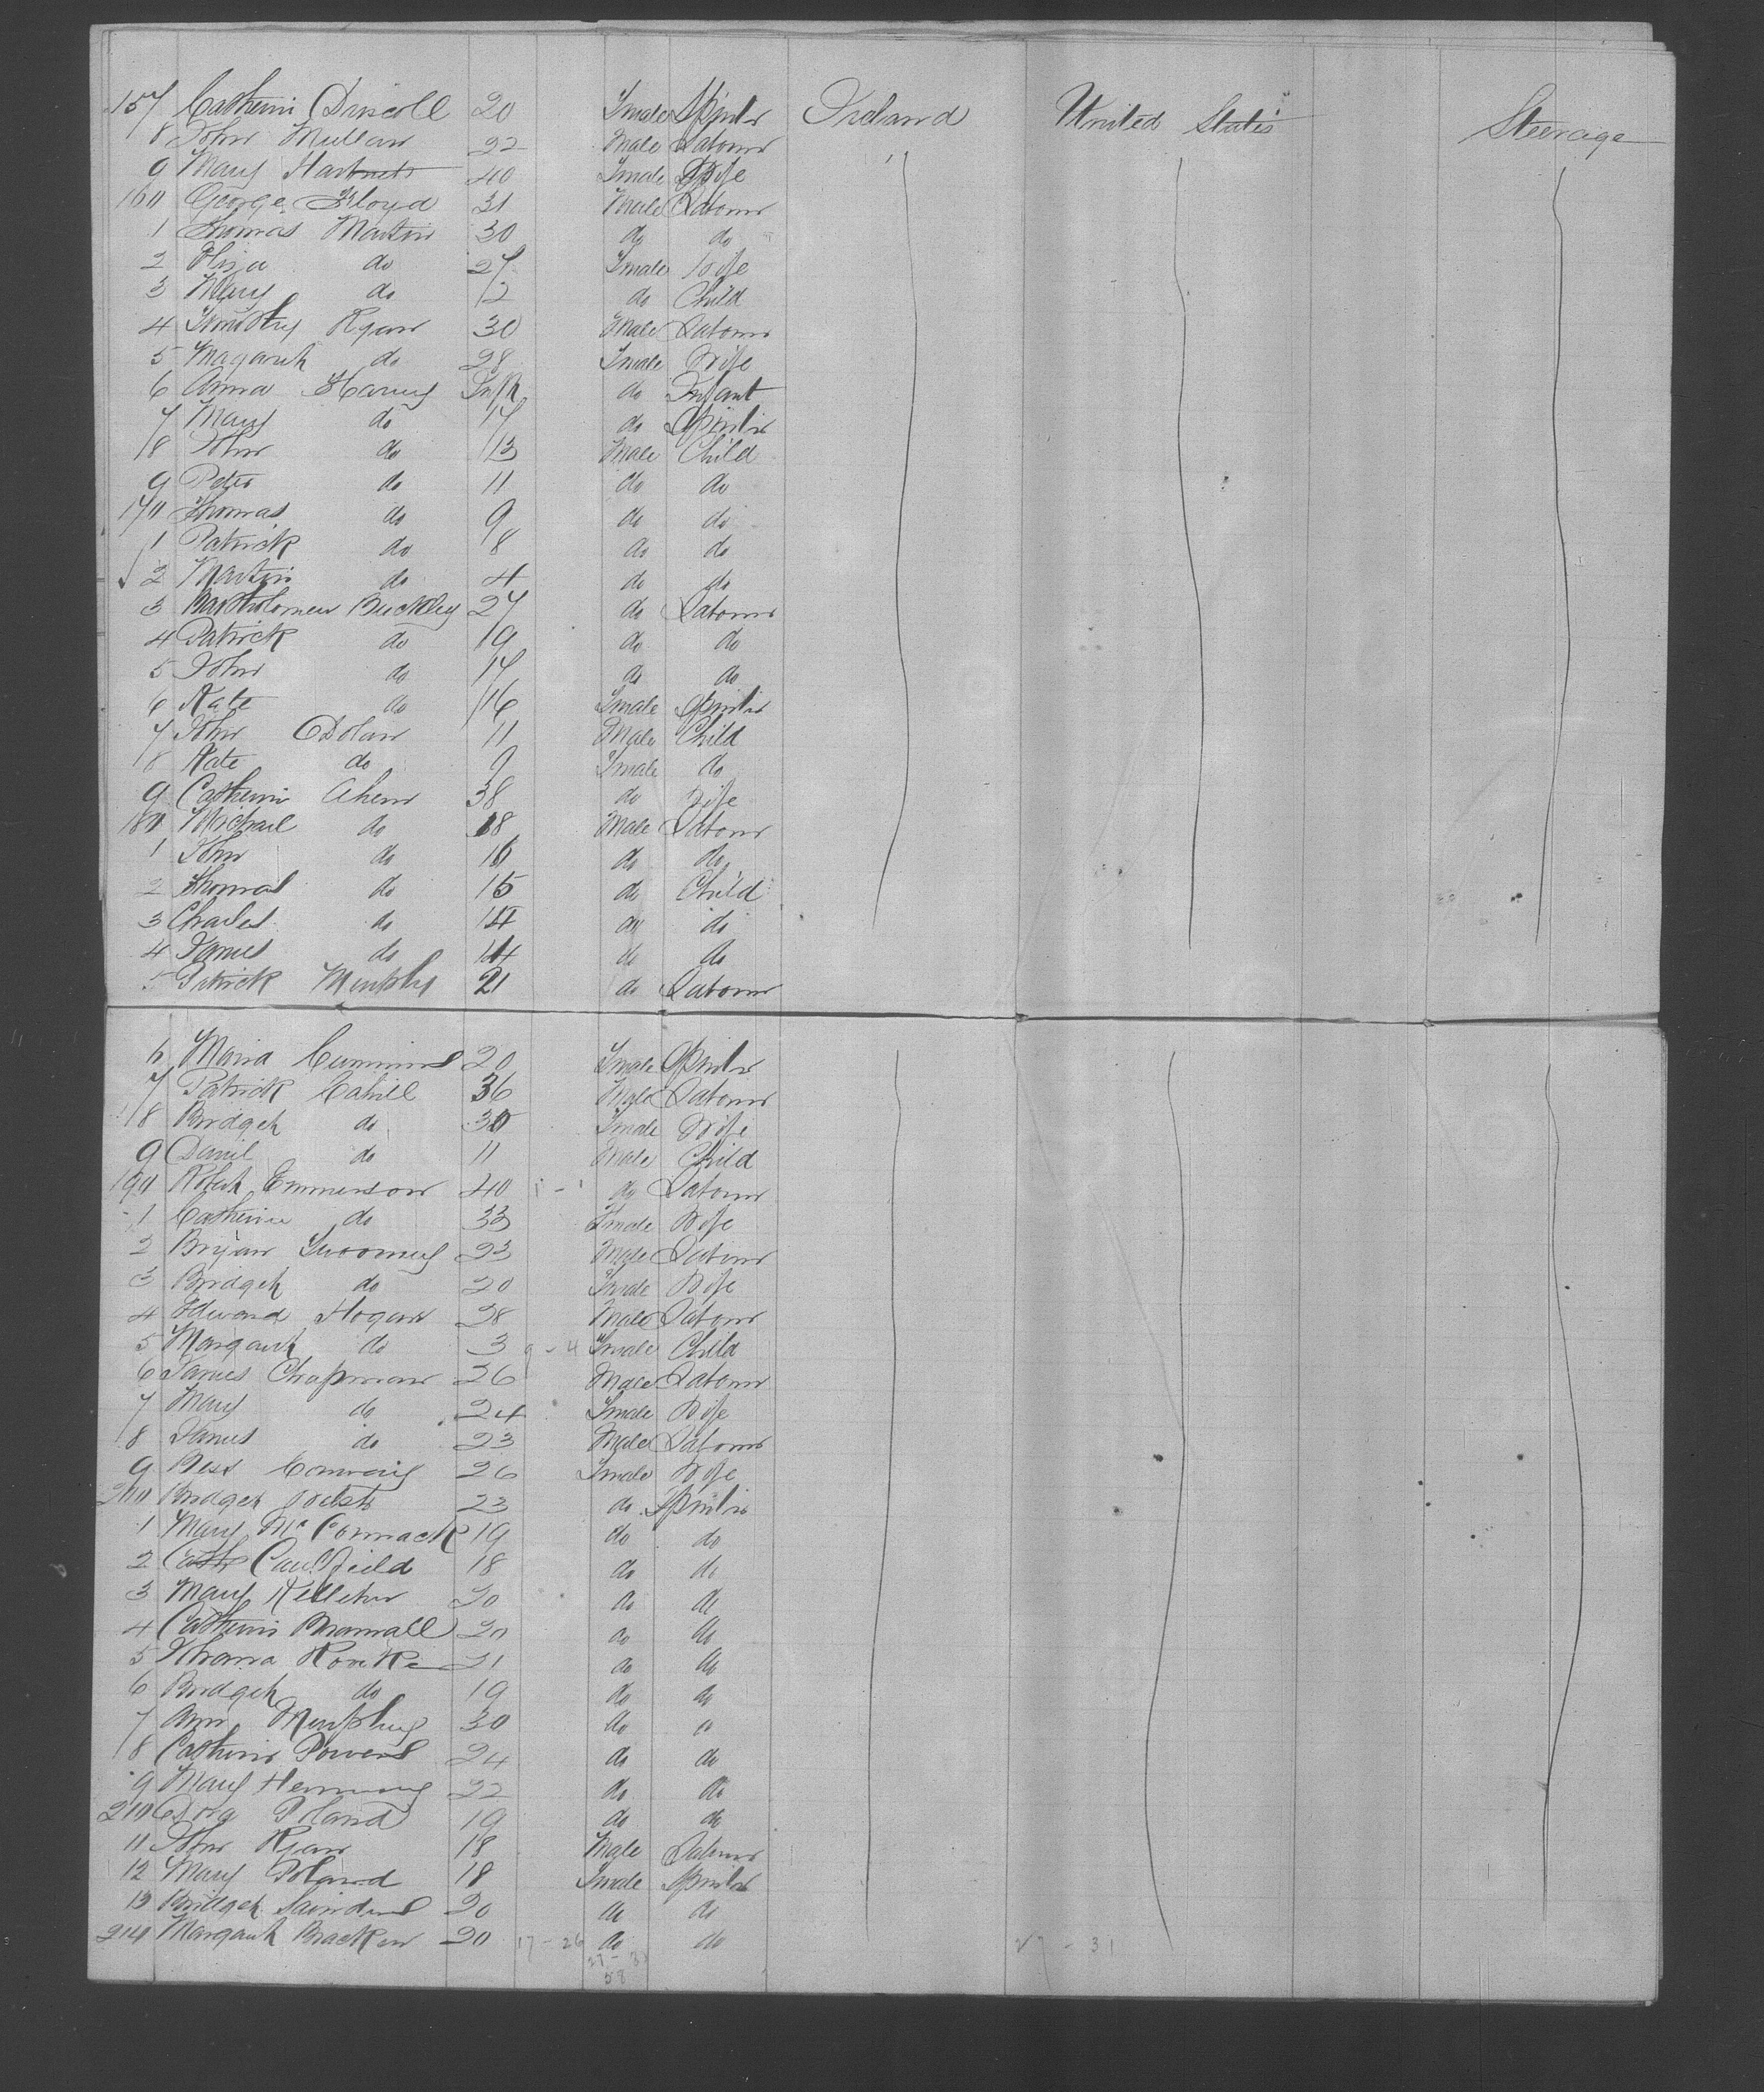 157 Catherin Driscoll 20 Fmale Spinstr Ireland United States Steerage
8 John Mullan 22 Male Labourer
9 Mary Hartnett 40 Fmale Wife
160 George Floyd 31 Male Labourer
1 Thomas Martin 30 do do
2 Eliza do 27 Fmale Wife
3 Mary do 12 do Child
4 Timothy Ryan 30 Male Labourer
5 Magaret do 28 Fmale Wife
6 Anna Harvey Inft do Infant
7 Mary do 17 do Spinstr
8 John do 13 Male Child
9 Peter do 11 do do
170 Thomas do 9 do do
1 Patrick do 8 do do
2 Martin do 4 do do
3 Bartholomew Buckley 27 do Labourer
4 Patrick do 19 do do
5 John do 17 do do
6 Kate do 16 Fmale Spinstr
7 John Dolan 11 Male Child
8 Kate do 9 Fmale do
9 Catherin Ahern 38 do Wife
180 Michael do 18 Male Labourer
1 John do 16 do do
2 Thomas do 15 do Child
3 Charles do 14 do do
4 James do 14 do do
5 Patrick Murphy 21 do Labourer
6 Maria Cummins 20 Fmale Spinstr
7 Patrick Cahill 36 Male Labourer
8 Bridget do 30 Fmale Wife
9 Daniel do 11 Male Child
190 Robert Emmerson 40 do Labourer
1 Catherine do 33 Fmale Wife
2 Bryan Twoomey 23 Male Labourer
3 Bridget do 20 Fmale Wife
4 Edward Hogan 28 Male Labourer
5 Margaret do 3 9 - 4 Fmale Child
6 James Chapman 26 Male Labourer
7 Mary do 24 Fmale Wife
8 James do 23 Male Labourer
9 Bess Conway 26 Fmale Wife
200 Bridget 23 do Spinstr
1 Mary McCormack 19 do do
2 Cath Caulfield 18 do do
3 Mary Kelleher 20 do do
4 Catherin Bramall 20 do do
5 Rourke 21 do do
6 Bridget do 19 do do
7 Ann Murphy 30 do do
8 Catherin Powers 24 do do
9 Mary 22 do do
210 Dora Poland 19 do do
11 John Ryan 18 Male Labourer
12 Mary Poland 18 Fmale Spinstr
13 Bridget Saunders 20 do do
214 Margaret Bracken 20 17 - 26 do do 27 - 31
58